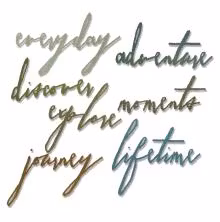 everyday
adventure
discover
explore
moments
journey
lifetime